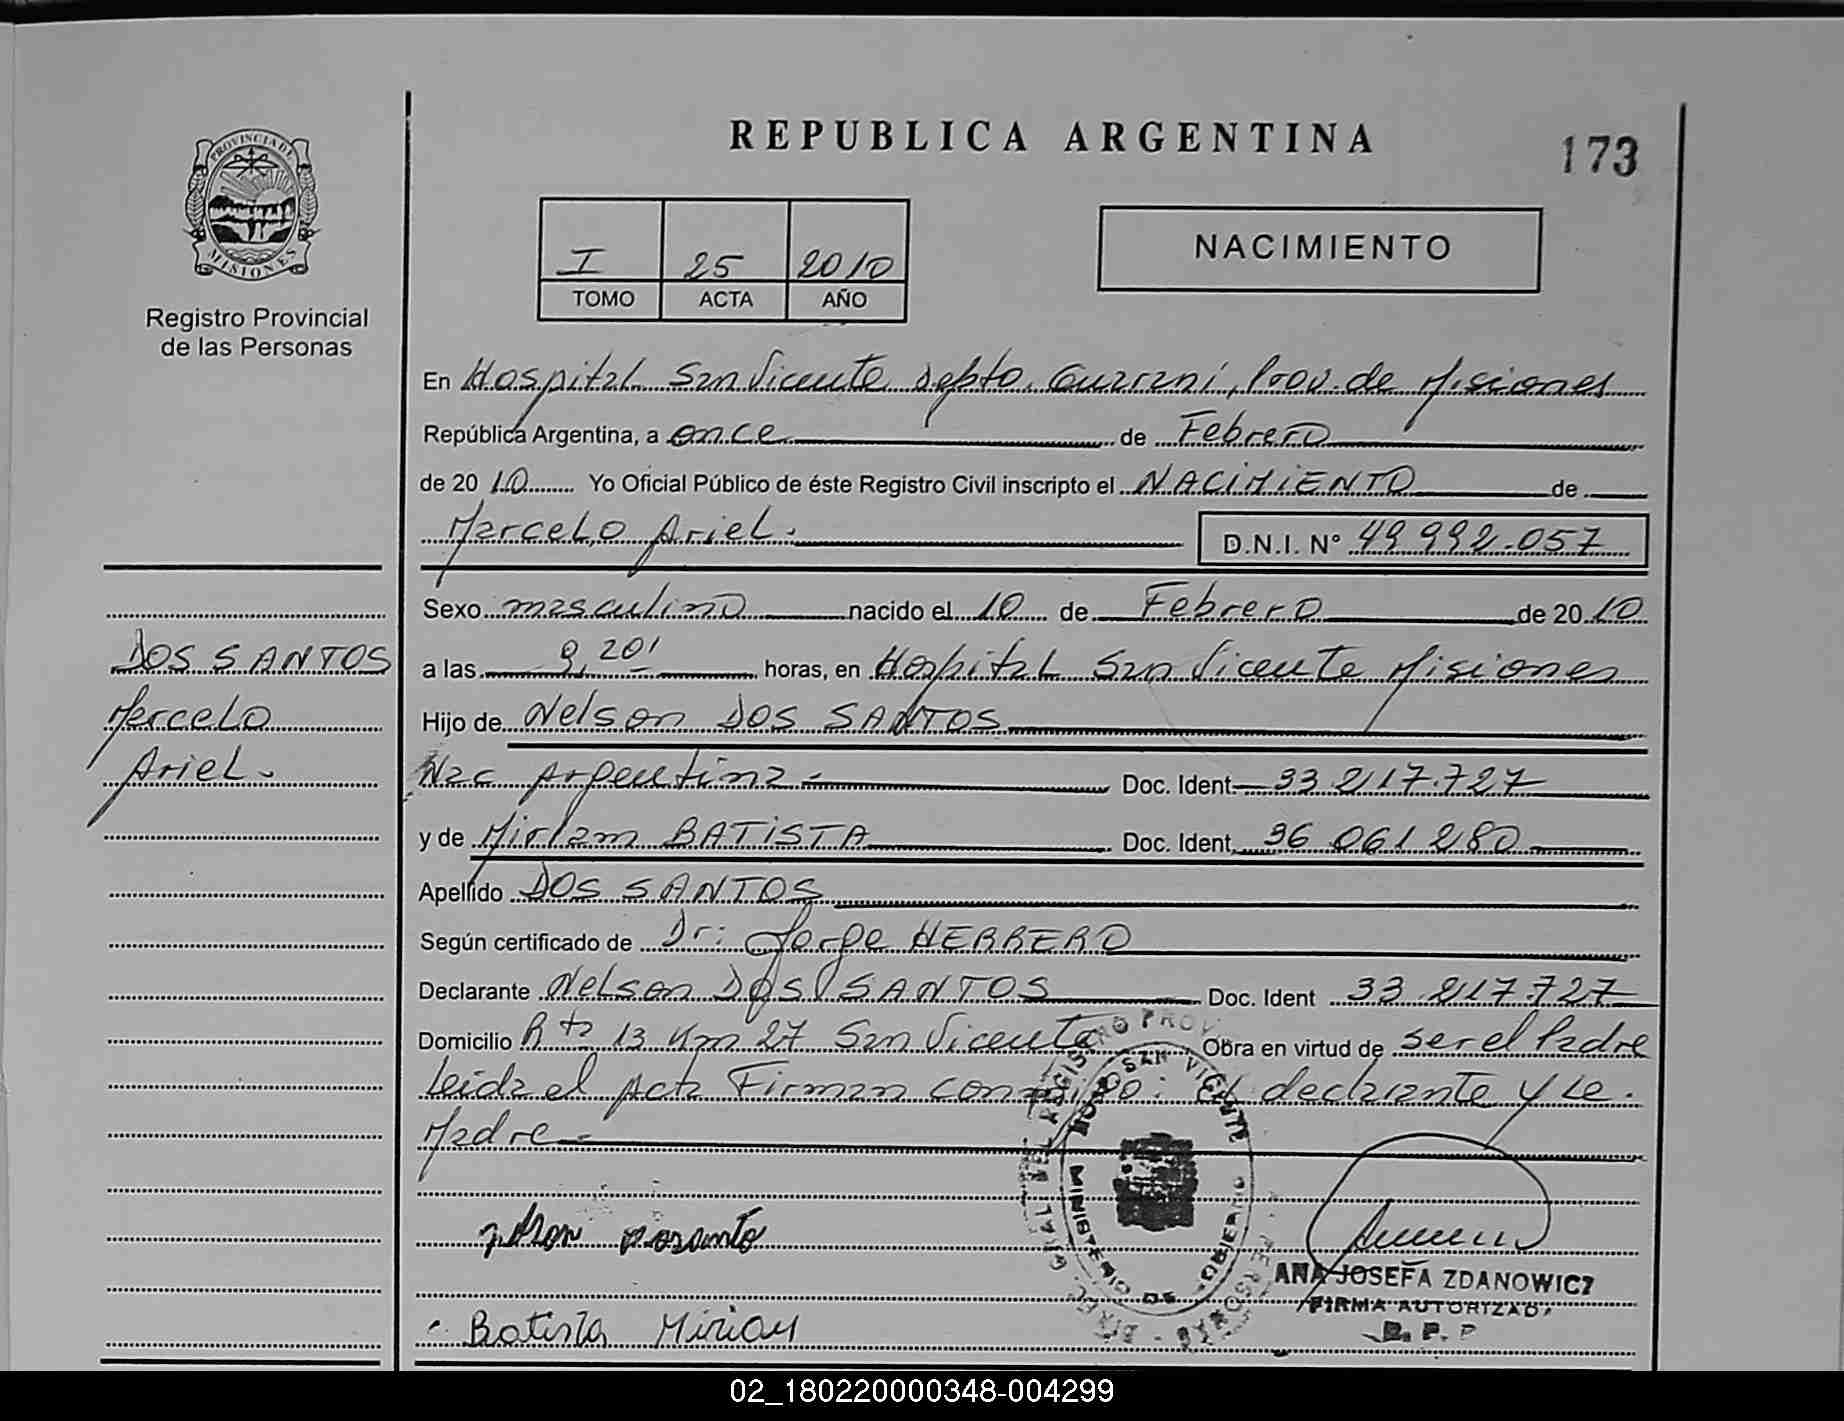 REPUBLICA ARGENTINA
173
PROVINCIA DE MISIONES
Registro Provincial
de las Personas
I 25 2010
TOMO ACTA AÑO
NACIMIENTO
En Hospital San Vicente Depto. Guaraní, Prov. de Misiones
República Argentina, a once de Febrero
de 2010 Yo Oficial Público de éste Registro Civil inscripto el NACIMIENTO de
Marcelo Ariel.
D.N.I. N° 49.992.057
Sexo masculino nacido el 10 de Febrero de 2010
a las 9,20' horas, en Hospital San Vicente Misiones
Hijo de Nelson DOS SANTOS
Nac Argentina - Doc. Ident. 33 217.727
y de Miriam BATISTA Doc. Ident. 36 061 280
Apellido DOS SANTOS
Según certificado de Dr: Jorge HERRERO
Declarante Nelson DOS SANTOS Doc. Ident 33 217 727
Domicilio Rta 13 Km 27 San Vicente Obra en virtud de ser el Padre
Leida el Acta Firman conmigo: el declarante y la
Madre -
DOS SANTOS
Marcelo
Ariel -
SAN VICENTE
MINISTERIO DE GOBIERNO
ANA JOSEFA ZDANOWICZ
FIRMA AUTORIZADA
R. P. P
Batista Miriam
02_180220000348-004299